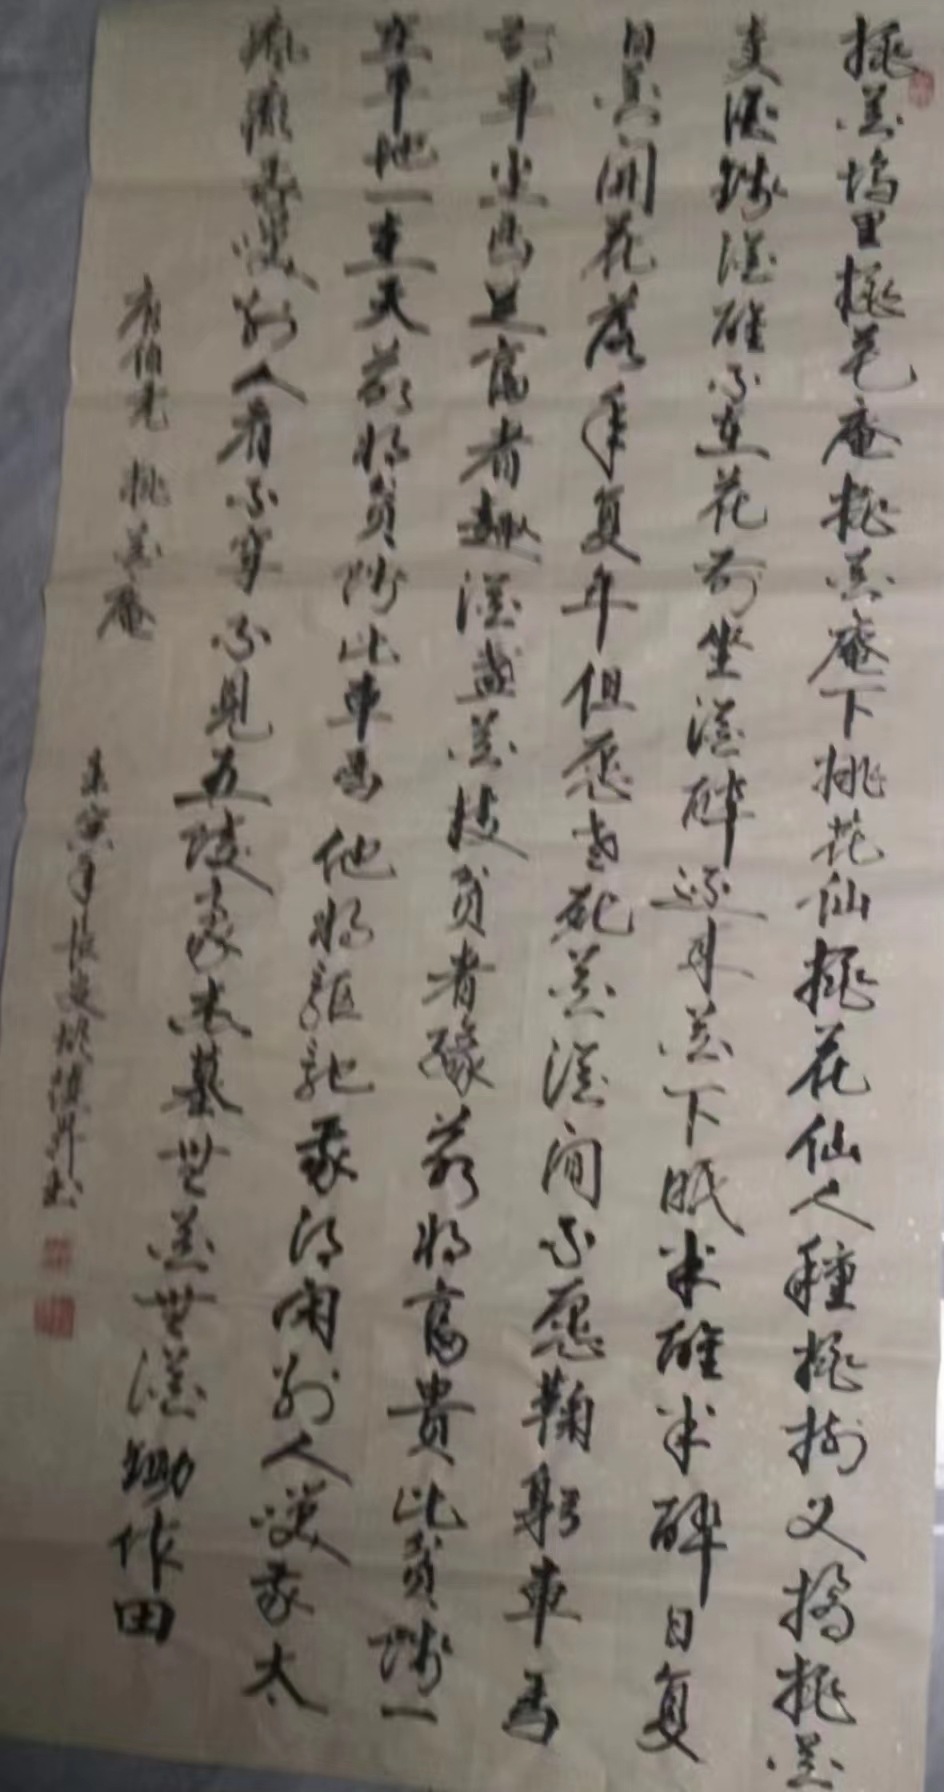 桃花坞里桃花庵桃花庵下桃花仙桃花仙人種桃树又摘桃花
卖酒錢酒醒只在花前坐酒醉还来花下眠半醒半醉日复
日花開花落年复年但愿老死花酒间不愿鞠躬車馬
前車尘馬足富者趣酒盏花枝貧者缘若将富貴比貧贱一
在平地一在天若将貧贱比車馬他将驱驰我得闲别人笑我太
疯癫我笑别人看不穿不見五陵豪杰墓無花無酒锄作田
唐伯虎 桃花庵
壬寅年